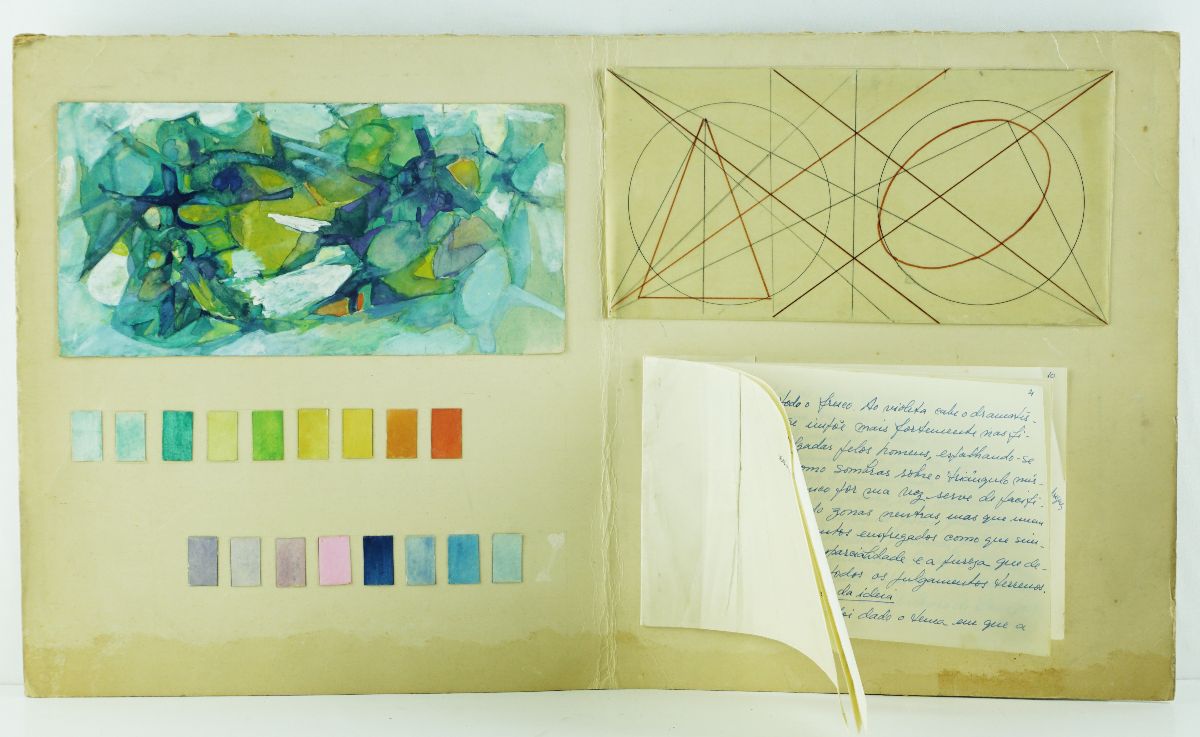 10
4
todo o fresco. Ao violeta cabe o dramatis-
se impõe mais fortemente nas fi-
gadas pelos homens, espalhando-se
omo sombras sobre o "triângulo mís-
nco por sua vez, serve de pacifi-
do zonas neutras, mas que num
ntos empregados como que sim-
parcialidade e a pureza que de-
todos os julgamentos terrenos.
da ideia
foi dado o tema em que a